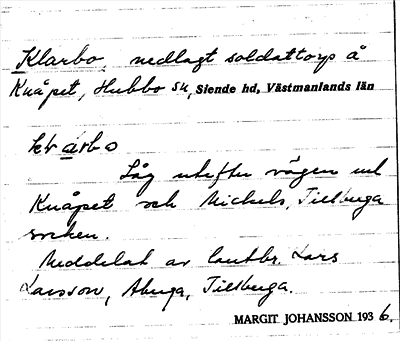 Klarbo, nedlagt soldattorp å
Knåpet, Hubbo sn, Siende hd, Västmanlands län
klarbo
Låg utefter vägen ml
Knåpet och Michels, Tillberga
socken.
Meddelat av lantbr. Lars
Larsson, Åbyga, Tillberga.
MARGIT JOHANSSON 1936.